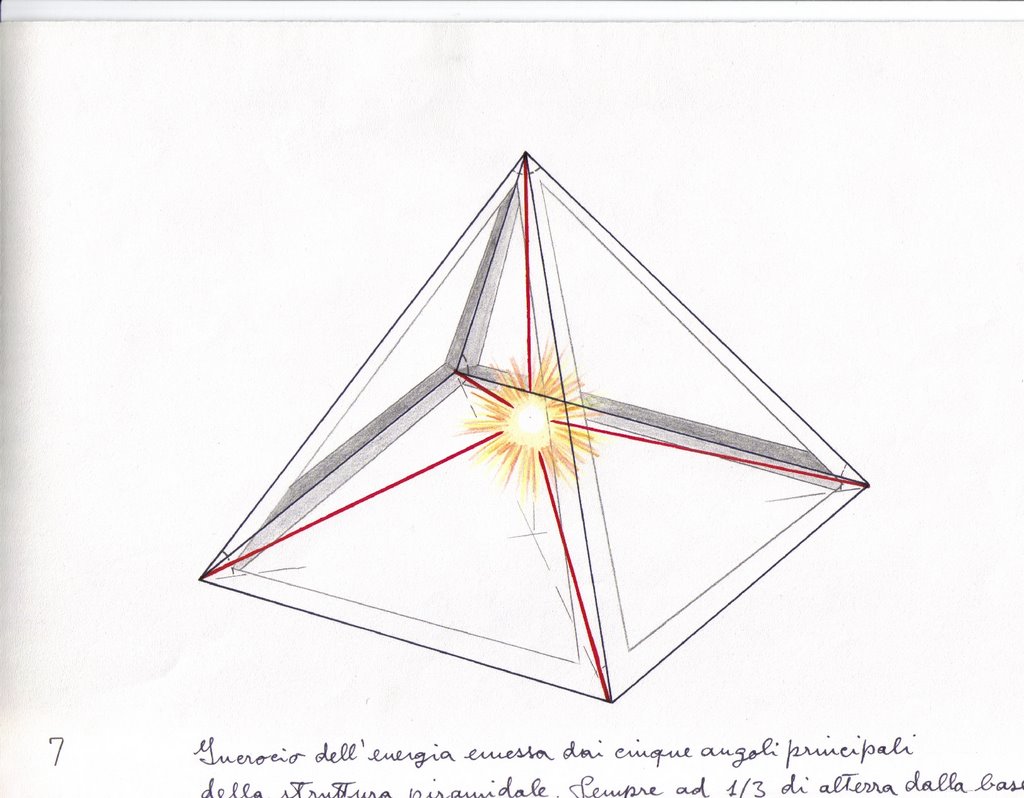 7
Incrocio dell'energia emessa dai cinque angoli principali
della struttura piramidale. Sempre ad 1/3 di altezza dalla base